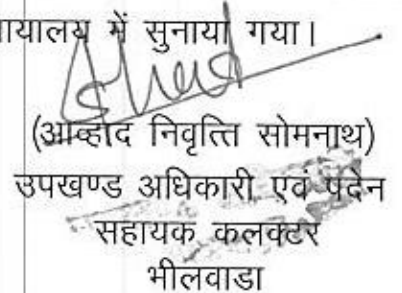 यायालय में सुनाया गया।
(आव्हाद निवृत्ति सोमनाथ)
उपखण्ड अधिकारी एवं पदेन
सहायक कलक्टर
भीलवाडा